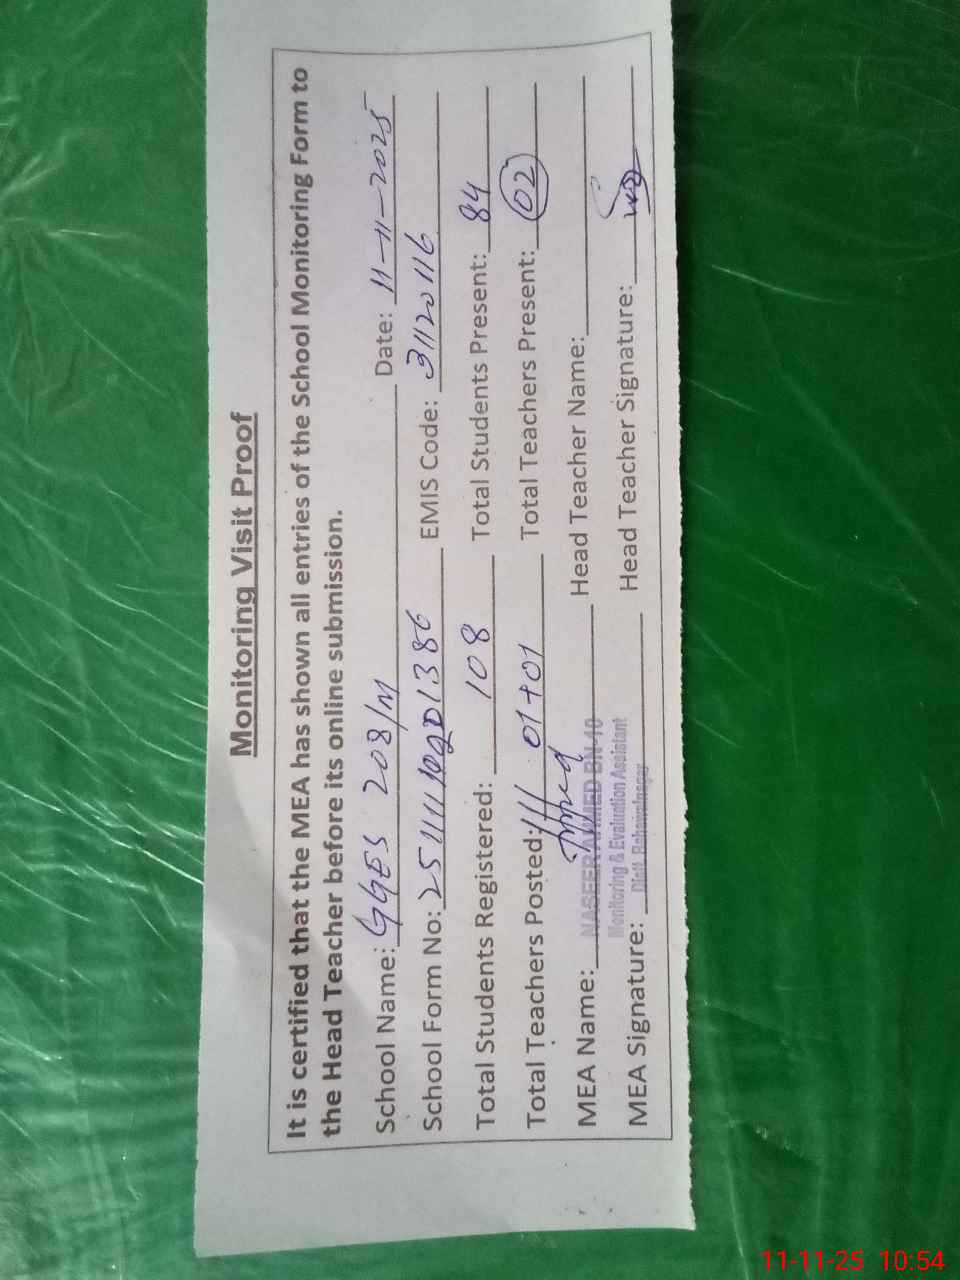 Monitoring Visit Proof
It is certified that the MEA has shown all entries of the School Monitoring Form to
the Head Teacher before its online submission.
School Name: GGES 208/M Date: 11-11-2025
School Form No: EMIS Code: 31120116
Total Students Registered: 108 Total Students Present: 84
Total Teachers Posted: 01+01 Total Teachers Present: 02
MEA Name: NASEER AHMED BN-10 Head Teacher Name:
Monitoring & Evaluation Assistant
MEA Signature: Distt. Bahawalnagar Head Teacher Signature:
11-11-25 10:54